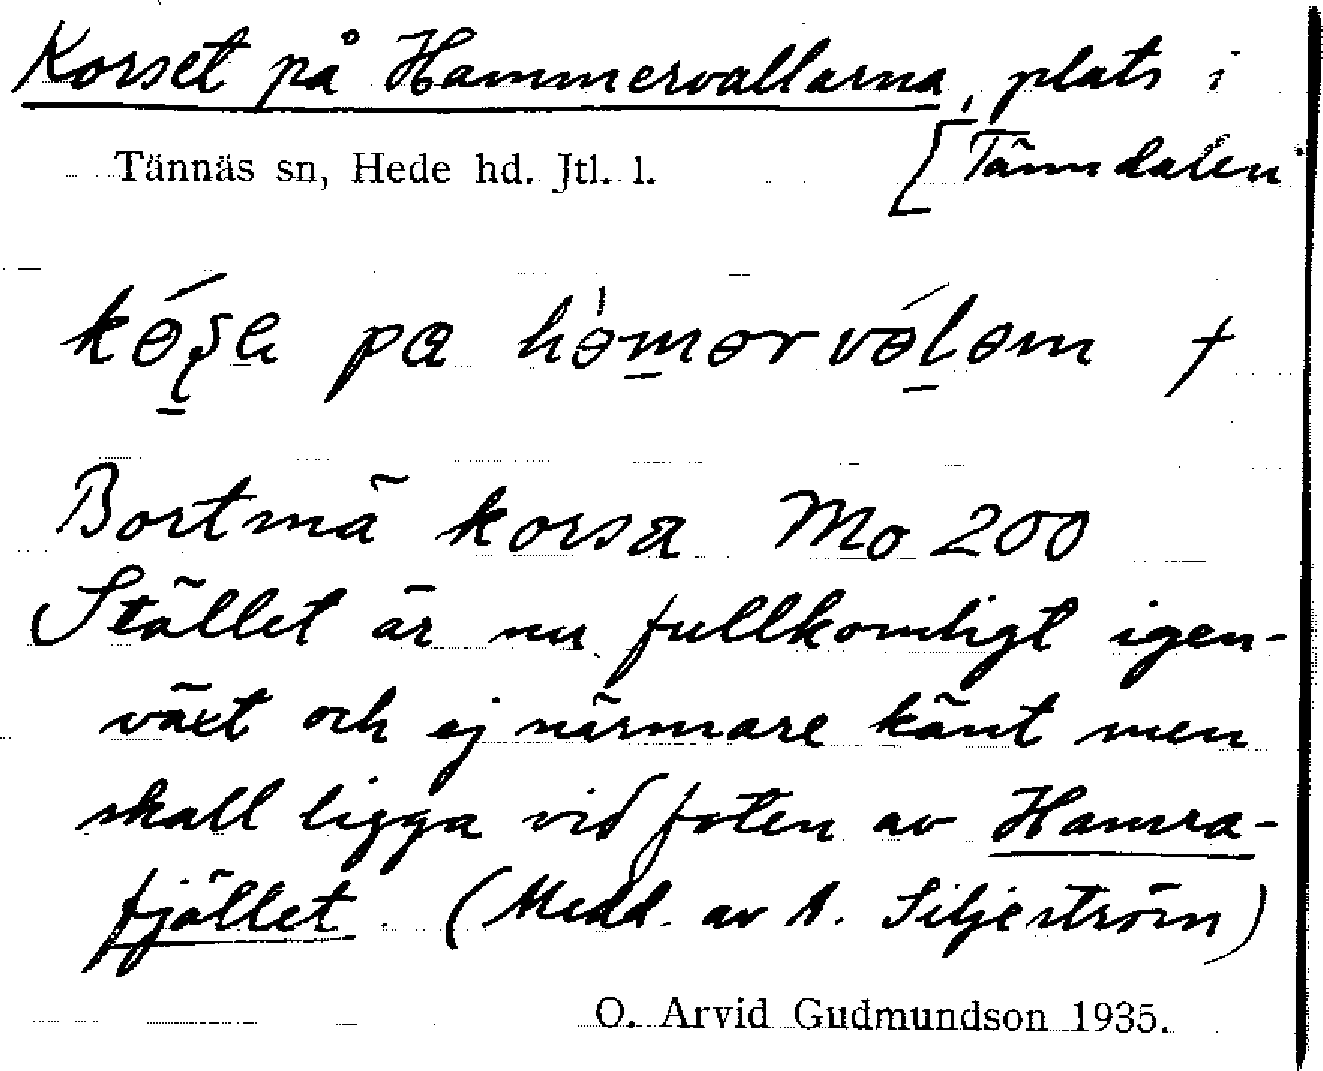 Korset på Hammervallarna, plats i
[Tänndalen
Tännäs sn, Hede hd. Jtl. l.
pa
Bortmä korsa Mo 200
Stället är nu fullkomligt igen-
växt och ej närmare känt men
skall ligga vid foten av Hamra-
fjället. (Medd. av A. Siljeström)
O. Arvid Gudmundson 1935.